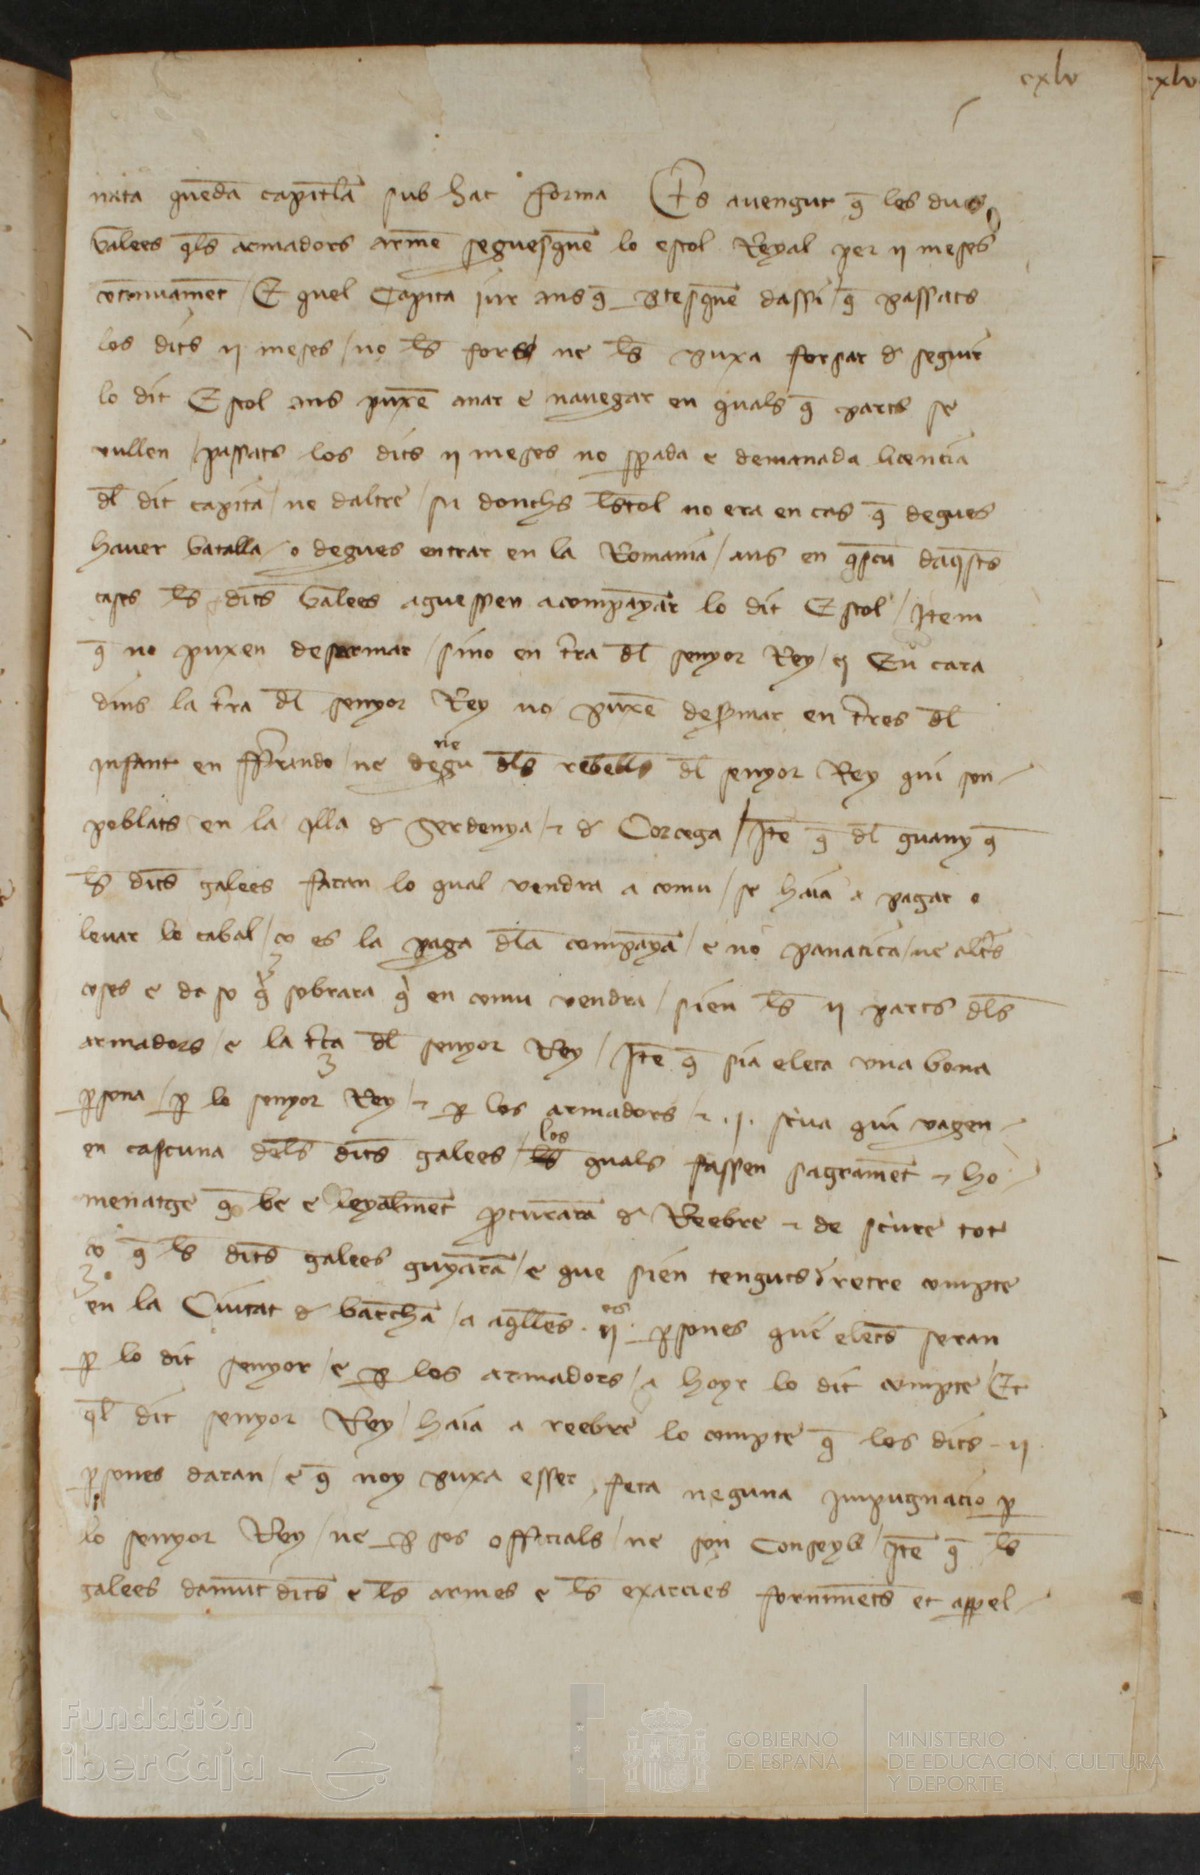 cxlv
cxlv
nata quēdā capitlā sub hac forma Es avengut q̄ les dues
Galees q̄ls armadors armē seguesquē lo estol Reyal per ij meses
contnuamēt / E quel Capita jur ans q̄ ptesquē dassi / q̄ passats
los dits ij meses / no ls̄ fors ne ls̄ puxa forsar d seguir
lo dit Estol ans puxē anar e navegar en quals q̄ parts se
vullen / passats los dits ij meses no spada e demanada licencia
dl̄ dit capita / ne daltre / si donchs lstol no era en cas q̄ degues
haver batalla / o degues entrar en la Romania / ans en qscū daqsts
cases ls̄ dits Galees aguessen acompayar lo dit Estol / Item
q̄ no puxen desarmar / sino en tra dl̄ senyor Rey / En cara
dins la tra dl̄ senyor Rey no puxē desarmar en tres dl̄
infant en ffrando / ne negu dls̄ rebells dl̄ senyor Rey qui son
poblats en la illa d Serdenya / ⁊ d Corcega / Itē q̄ dl̄ guany q̄
ls̄ dits galees faran lo qual vendra a comu / se haia a pagar o
levar lo cabal / ço es la paga dla companya / e no panatica / ne altres
coses e de ço q̄ sobrara q̄ en comu vendra / sien ls̄ ij parts dls̄
armadors / e la tča dl̄ senyor Rey / Itē q̄ sia eleta una bona
psona / p lo senyor Rey / ⁊ p los armadors / ⁊ .j. scriva qui vagen
en cascuna dels dits galees / los quals fassen sagramēt ⁊ ho
menatge q̄ be e leyalmēt pcuraran d Reebre ⁊ de scriure tot
ço q̄ ls̄ dits galees guayarā / e que sien tenguts d retre compte
en la Ciutat d barchā / a aqlles .ij. psones qui elets seran
p lo dit senyor / e p los armadors / a hoyr lo dit compte / Et
ql̄ dit senyor Rey / haia a reebre lo compte q̄ los dits ij
psones daran / e q̄ noy puxa esser feta neguna impugnacio p
lo senyor Rey / ne p sos officials / ne son Conseyl / Itē q̄ ls̄
galees damūt dits e ls̄ armes e ls̄ exarcies fornimēts et appel
Fundación
iberCaja
GOBIERNO
DE ESPAÑA
MINISTERIO
DE EDUCACIÓN, CULTURA
Y DEPORTE